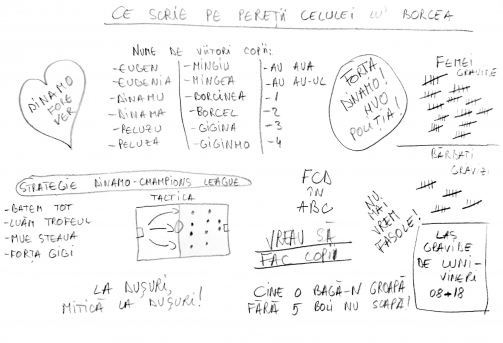 CE SCRIE PE PEREȚII CELULEI LU' BORCEA
NUME DE VIITORI COPII:
- EUGEN
- EUDENIA
- DINAMU
- DINAMA
- PELUZU
- PELUZA
- MINGIU
- MINGEA
- BORCINEA
- BORCEL
- GIGINA
- GIGINHO
- AU AUA
- AU AU-UL
- 1
- 2
- 3
- 4
DINAMO
FORE
VER
FORȚA
DINAMO!
HUO
POLIȚIA!
FEMEI
GRAVIDE
BĂRBAȚI
GRAVIZI
STRATEGIE DINAMO - CHAMPIONS LEAGUE
- BATEM TOT
- LUĂM TROFEUL
- MUE STEAUA
- FORȚA GIGI
TACTICA
FCD
ÎN
ABC
VREAU SĂ
FAC COPII
NU
MAI
VREM
FASOLE!
LAS
GRAVIDE
DE LUNI-
VINERI
08→18
LA DUȘURI,
MITICĂ LA DUȘURI!
CINE O BAGĂ-N GROAPĂ
FĂRĂ 5 BOII NU SCAPĂ!